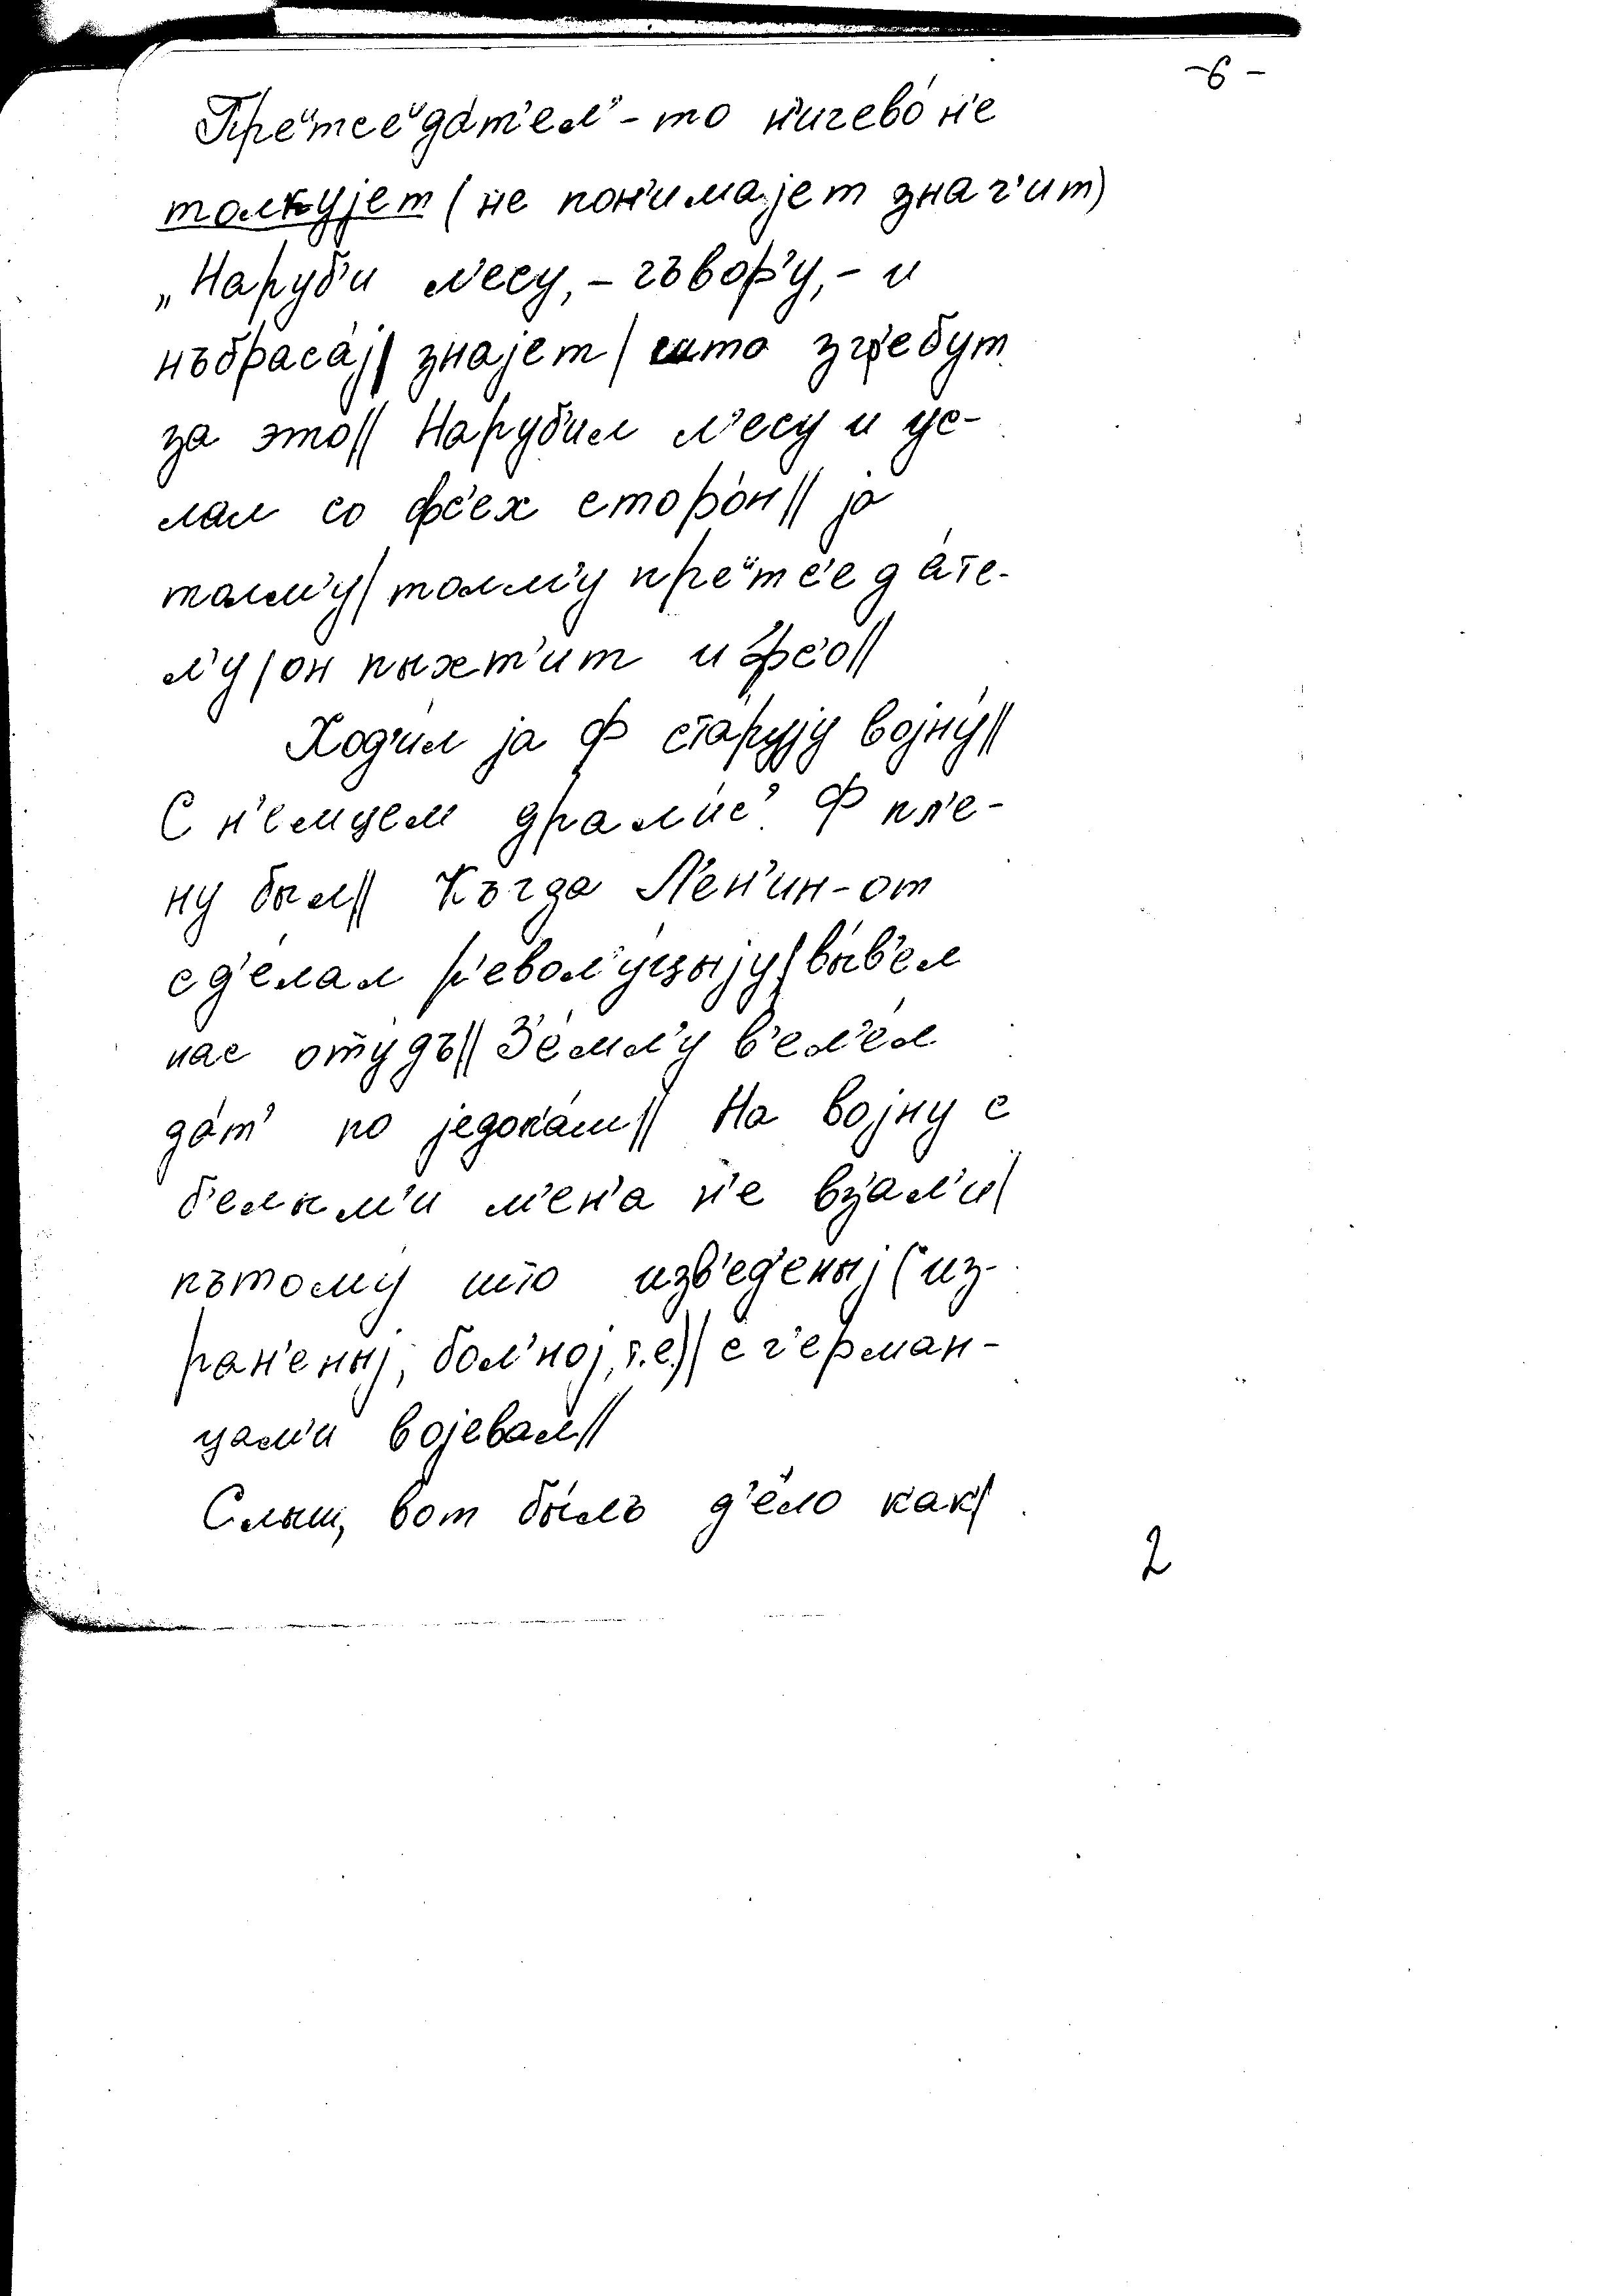 -6-
Пре"тсе"да́т'ел'-то н'ичево́ н'е
толкуjет (не пон'имаjет знач'ит)
„Наруб'и л'есу, - гъвор'у, - и
нъбраса́j/ знаjет/ што згр'ебут
за это// Наруб'ил л'есу и ус-
лал со фс'ех сторо́н// jа
толм'у/ толм'у пре"тс'едáте-
л'у/ он пыхт'ит и фс'о//
Ход'и́л jа ф стáруjу воjну́//
С н'емцем драли́с'. Ф пл'е-
ну был// Къгда Л'ен'ин-от
сд'е́лал р'евол'у́цыjу/ вы́в'ел
нас оту́дъ// З'е́мл'у в'ел'е́л
да́т' по jедока́м// На воjну с
б'елым'и м'ен'а н'е вз'ал'и/
пътому́ што изв'ед'еныj (из-
ран'еныj, бол'ноj, т.е.)// с г'ерман-
цам'и воjевал//
Слыш, вот бы́лъ д'е́ло как/
2